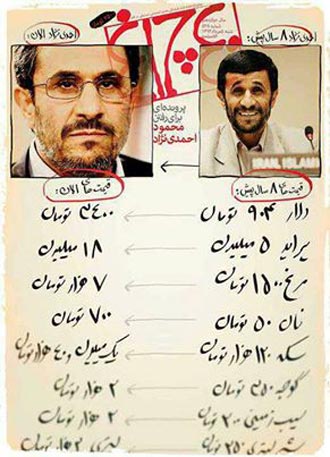 احمدی نژاد ۸ سال پیش:
احمدی نژاد الان:
چلچراغ
پرونده‌ای
برای رفتن
محمود
احمدی‌نژاد
IRAN ISLAMI
قیمت ها ۸ سال پیش:
قیمت های الان:
دلار ۹۰۴ تومان ۳۴۰۰ تومان
پراید ۵ میلیون ۱۸ میلیون
مرغ ۱۵۰۰ تومان ۷ هزار تومان
نان ۵۰ تومان ۷۰۰ تومان
سکه ۱۲۰ هزار تومان یک میلیون و ۴۰ هزار تومان
گوجه ۲۵۰ تومان ۲ هزار تومان
سیب زمینی ۲۰۰ تومان ۲ هزار تومان
شیر لیتری ۲۵۰ تومان لیتری